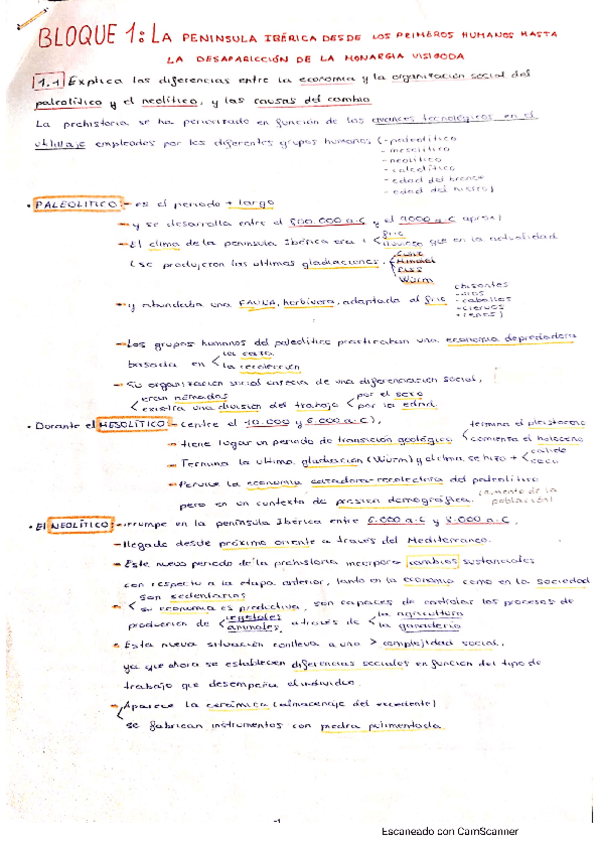 BLOQUE 1: LA PENINSULA IBÉRICA DESDE LOS PRIMEROS HUMANOS HASTA
LA DESAPARICCIÓN DE LA MONARGIA VISIGODA
1.1 Explica las diferencias entre la economia y la organización social del
paleolítico y el neolítico, y las causas del cambio
La prehistoria se ha periodizado en función de los avances tecnológicos en el
utillaje empleados por los diferentes grupos humanos (-paleolítico
- mesolítico
- neolítico
- calcolítico
- edad del bronce
- edad del hierro)
• PALEOLITICO: - es el periodo + largo
- y se desarrolla entre el 800.000 a.C y el 9000 a.C aprox)
- El clima de la peninsula Ibérica era + < frio
que en la actualidad
(se produjeron las ultimas glaciaciones.
Günz
Mindel
Riss
Würm
- y abundaba una FAUNA, herbívora, adaptada al frio
- caballos
- ciervos
- Los grupos humanos del paleolítico practicaban una economia depredadora
basada en < la caza
la recolección
- Su organización social carecia de una diferenciación social,
< eran nómadas
existia una división del trabajo < por el sexo
por la edad.
• Dorante el MESOLÍTICO - (entre el 10.000 y 6.000 a.C),
- tiene lugar un periodo de transición geológico < termina el pleistoceno
comienza el holoceno
- Termina la ultima glaciación (Würm) y el clima se hizo + < calido
seco
- Pervive la economia cazadora-recolectora del paleolítico
pero en un contexto de presion demográfica. (aumento de la
población)
• El NEOLÍTICO: - irrumpe en la península Ibérica entre 6.000 a.C y 3.000 a.C,
- llegada desde próximo oriente a través del Mediterraneo.
- Este nuevo periodo de la prehistoria incorpora cambios sustanciales
con respecto a la etapa anterior, tanto en la economia como en la sociedad
- < son sedentarios
su economia es productiva, son capaces de controlar los procesos de
producción de < vegetales
animales, a través de < la agricultura
la ganaderia
• Esta nueva situación conlleva a una > complejidad social,
ya que ahora se establecen diferencias sociales en función del tipo de
trabajo que desempeña el individuo.
- Aparece la cerámica (almacenaje del excedente)
se fabrican instrumentos con piedra pulimentada
Escaneado con CamScanner